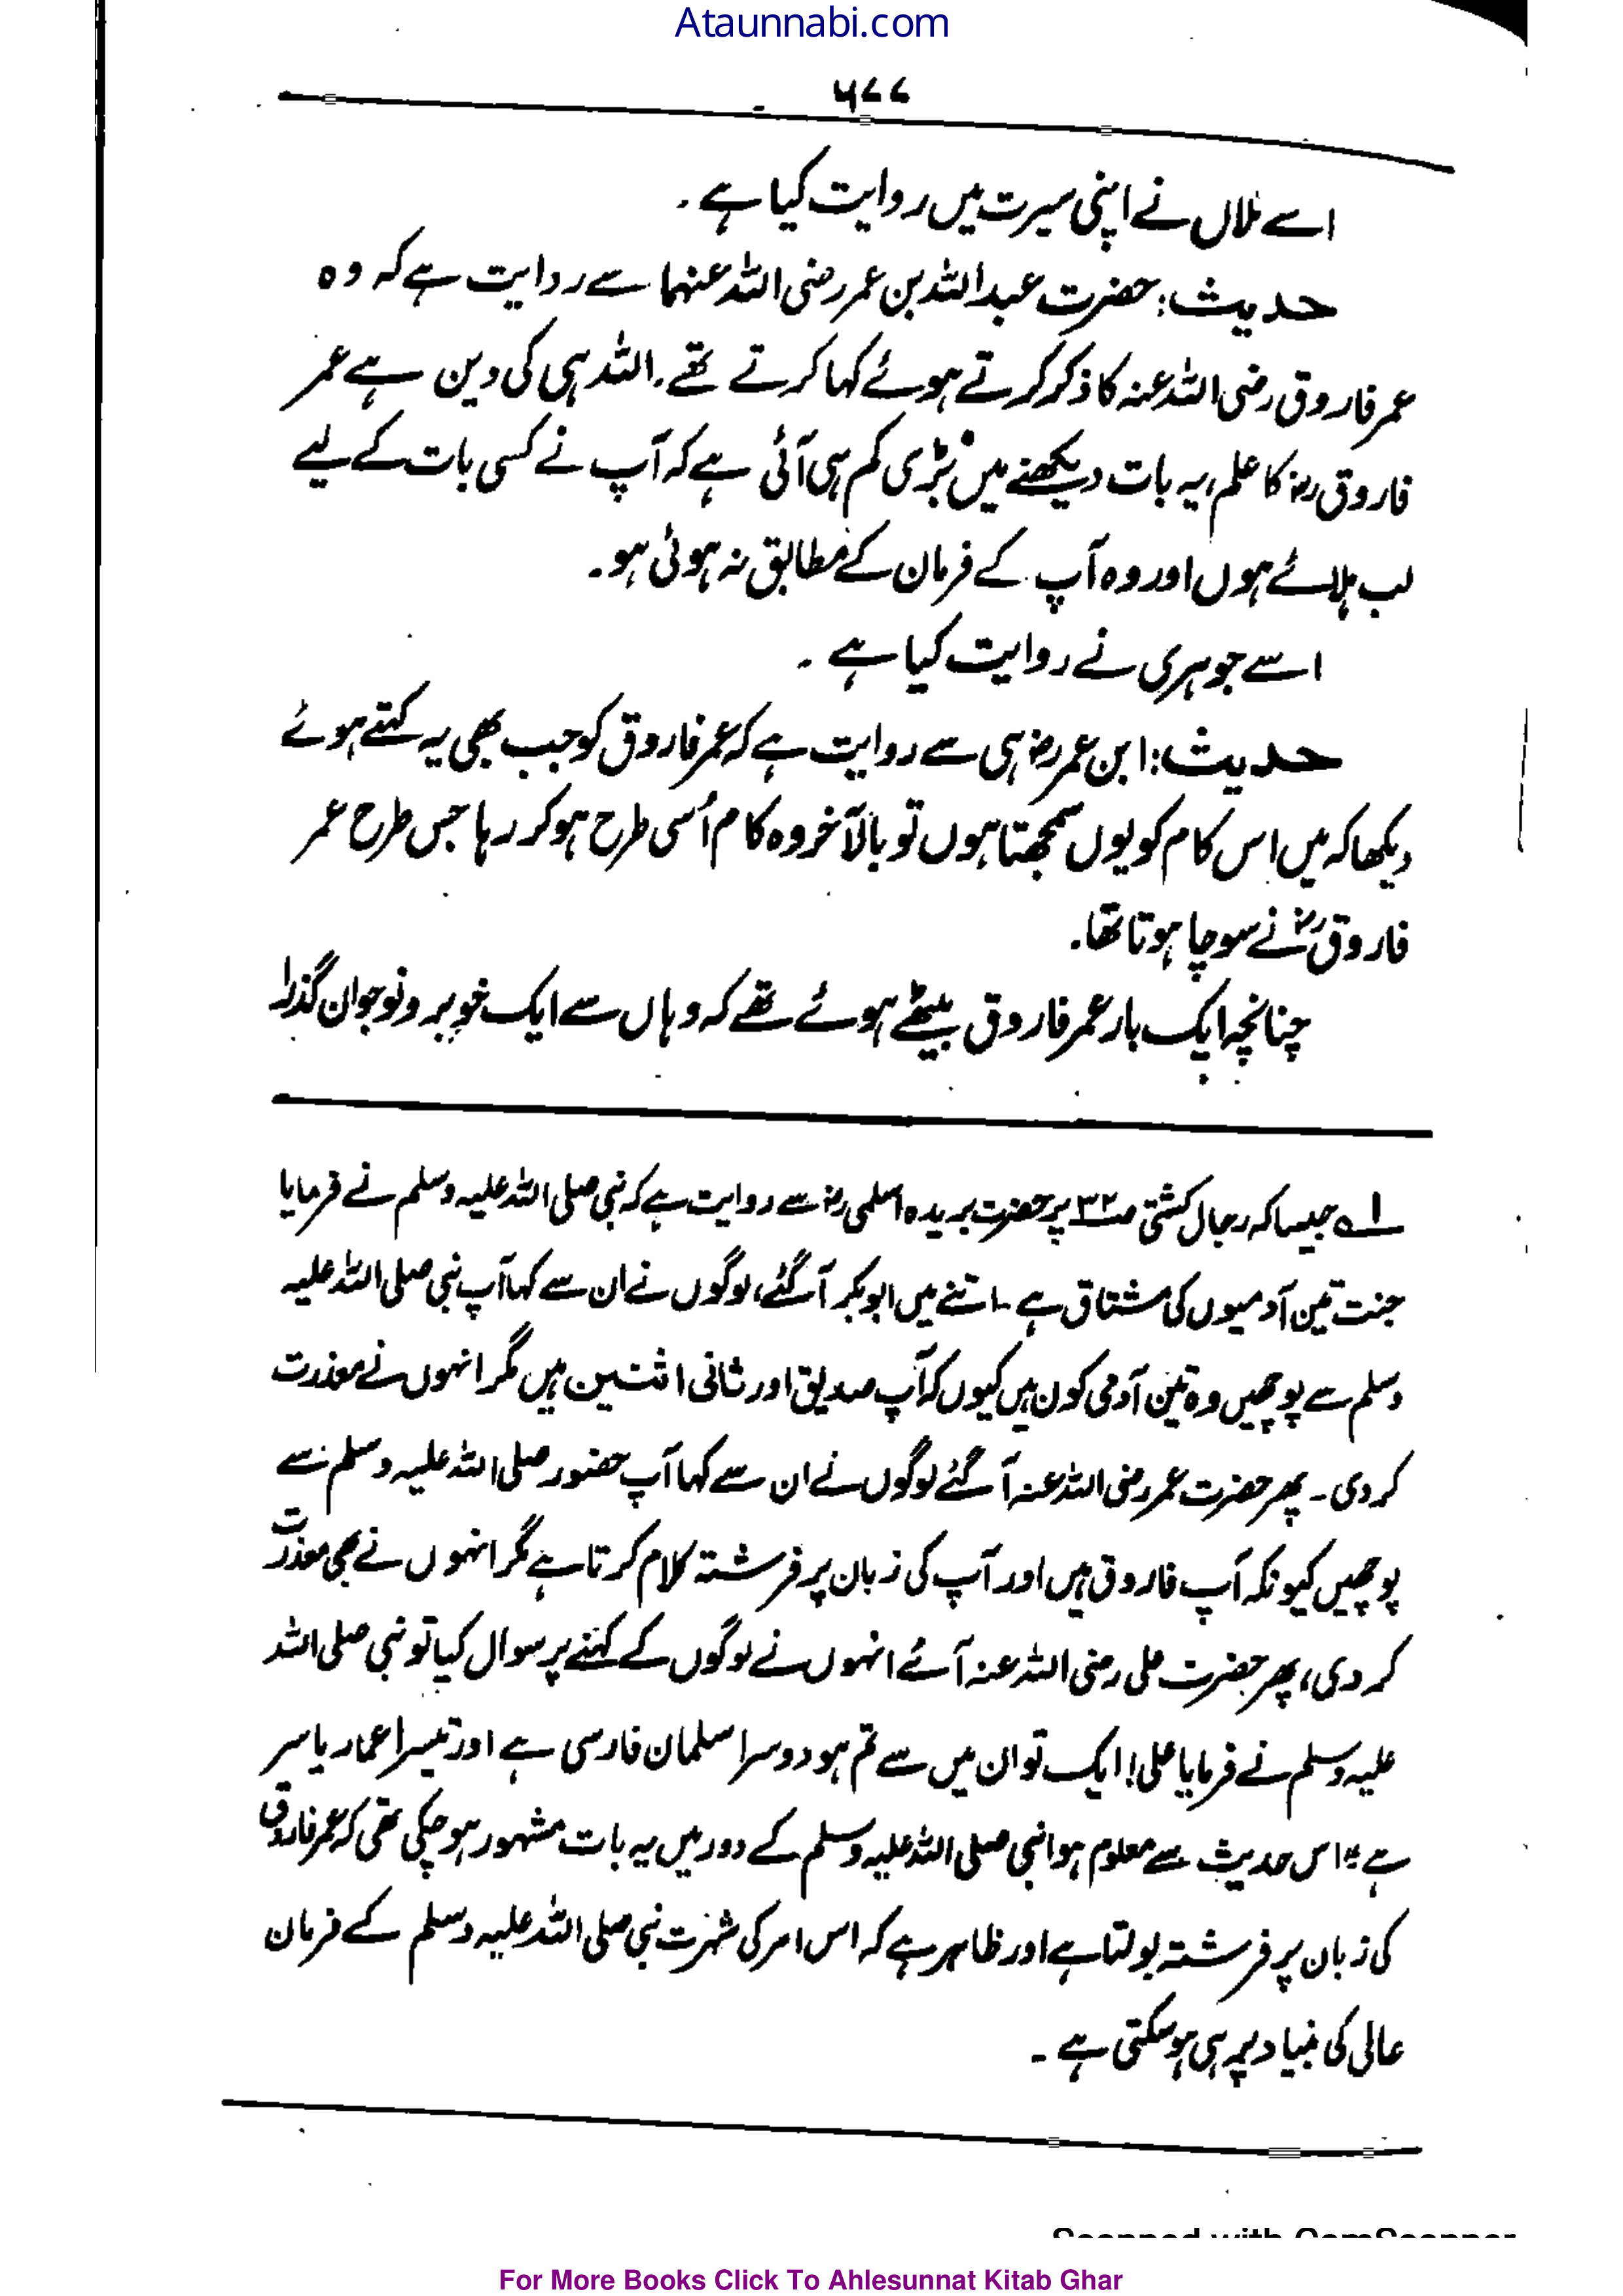 Ataunnabi.com
۵۷۷
اسے ملاں نے اپنی سیرت میں روایت کیا ہے ۔
حدیث: حضرت عبداللہ بن عمر رضی اللہ عنہما سے روایت ہے کہ وہ
عمر فاروق رضی اللہ عنہ کا ذکر کرتے ہوئے کہا کرتے تھے۔ اللہ ہی کی دین ہے عمر
فاروق رض کا علم، یہ بات دیکھنے میں بڑی کم ہی آئی ہے کہ آپ نے کسی بات کے لیے
لب ہلائے ہوں اور وہ آپ کے فرمان کے مطابق نہ ہوئی ہو۔
اسے جوہری نے روایت کیا ہے ۔
حدیث: ابن عمر رض ہی سے روایت ہے کہ عمر فاروق کو جب بھی یہ کہتے ہوئے
دیکھا کہ میں اس کام کو یوں سمجھتا ہوں تو بالآخر وہ کام اُسی طرح ہو کر رہا جس طرح عمر
فاروق رض نے سوچا ہوتا تھا۔
چنانچہ ایک بار عمر فاروق بیٹھے ہوئے تھے کہ وہاں سے ایک خوبرو نوجوان گذرا
۱؎ جیسا کہ رجال کشی ص۳۲ پر حضرت بریدہ اسلمی رض سے روایت ہے کہ نبی صلی اللہ علیہ وسلم نے فرمایا
جنت تین آدمیوں کی مشتاق ہے ۔ اتنے میں ابوبکر آ گئے، لوگوں نے ان سے کہا آپ نبی صلی اللہ علیہ
وسلم سے پوچھیں وہ تین آدمی کون ہیں کیوں کہ آپ صدیق اور ثانی اثنین ہیں مگر انہوں نے معذرت
کر دی ۔ پھر حضرت عمر رضی اللہ عنہ آ گئے لوگوں نے ان سے کہا آپ حضور صلی اللہ علیہ وسلم سے
پوچھیں کیونکہ آپ فاروق ہیں اور آپ کی زبان پر فرشتہ کلام کرتا ہے مگر انہوں نے بھی معذرت
کر دی، پھر حضرت علی رضی اللہ عنہ آئے انہوں نے لوگوں کے کہنے پر سوال کیا تو نبی صلی اللہ
علیہ وسلم نے فرمایا علی! ایک تو ان میں سے تم ہو دوسرا سلمان فارسی ہے اور تیسرا عمار یاسر
ہے" اس حدیث سے معلوم ہوا نبی صلی اللہ علیہ وسلم کے دور میں یہ بات مشہور ہو چکی تھی کہ عمر فاروق
کی زبان پر فرشتہ بولتا ہے اور ظاہر ہے کہ اس امر کی شہرت نبی صلی اللہ علیہ وسلم کے فرمان
عالی کی بنیاد پر ہی ہو سکتی ہے ۔
Scanned with CamScanner
For More Books Click To Ahlesunnat Kitab Ghar